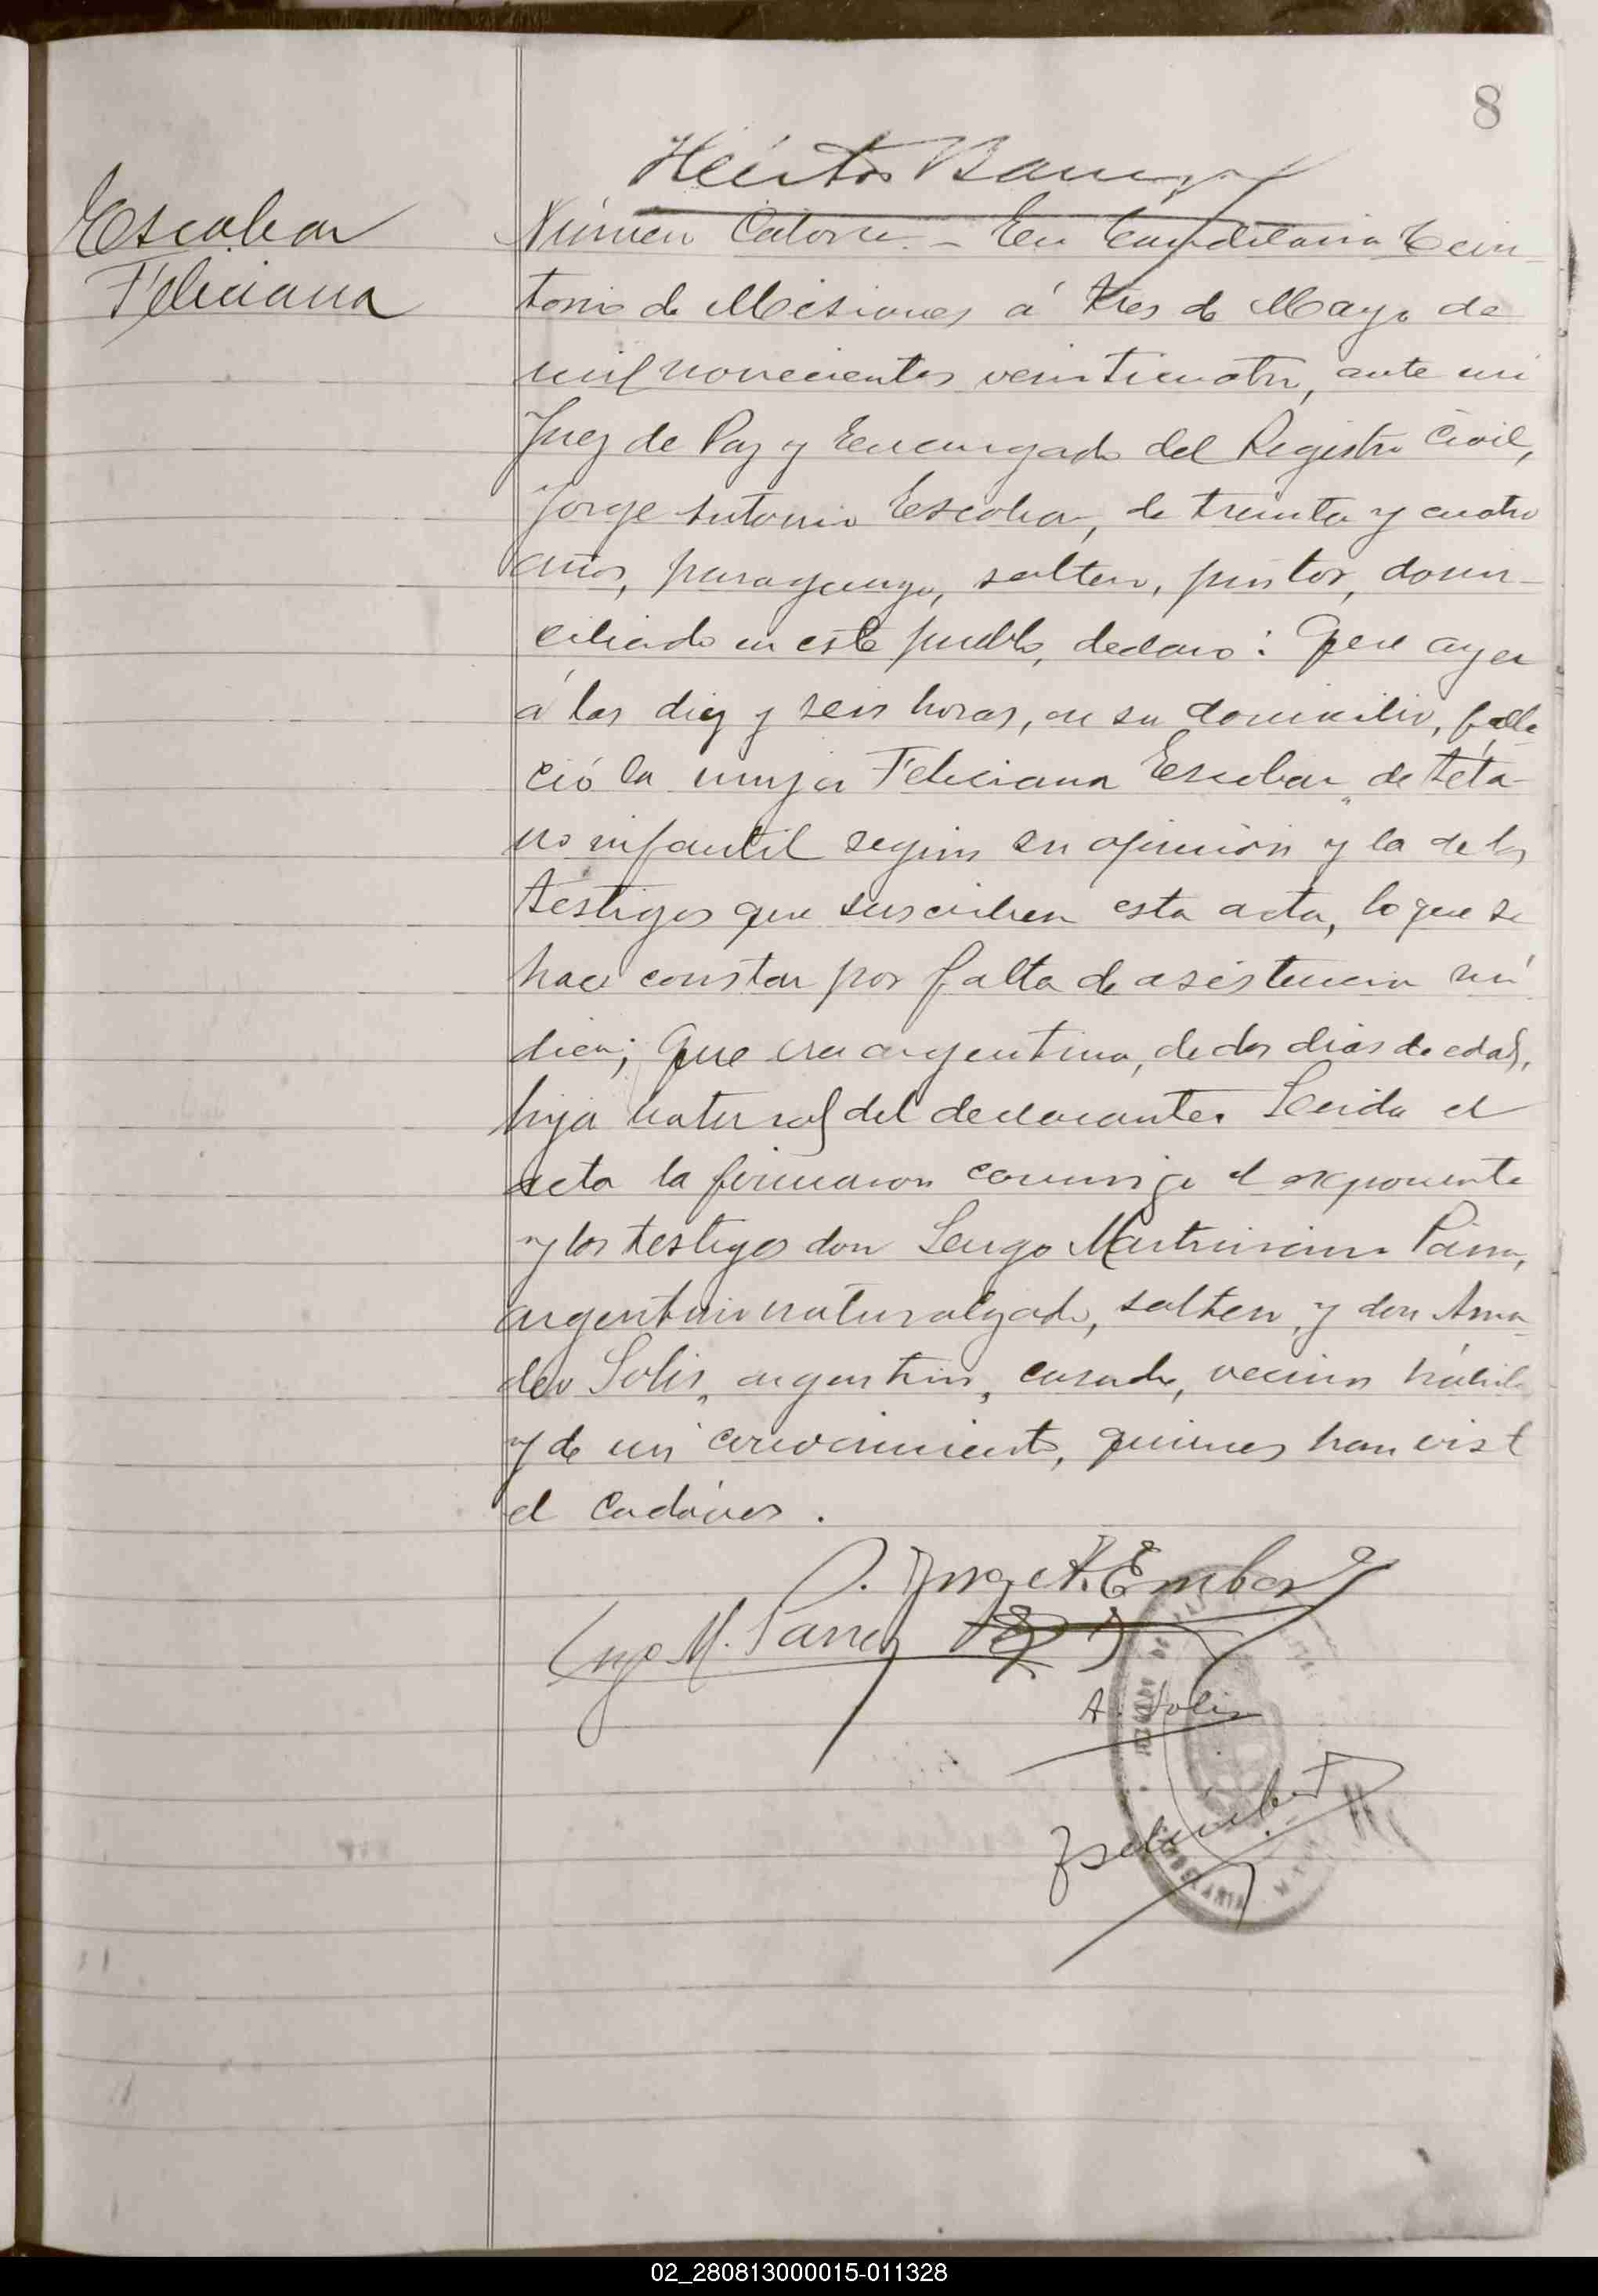 8
Escobar
Feliciana
Número Catorce. - En Candelaria Terri-
torio de Misiones á tres de Mayo de
mil novecientos veinticuatro, ante mi
Juez de Paz y Encargado del Registro Civil,
Jorge Antonio Escobar, de treinta y cuatro
años, paraguayo, soltero, pintor, domi-
ciliado en este pueblo, declaró: Que ayer
á las diez y seis horas, en su domicilio, falle
ció la mujer Feliciana Escobar, de téta-
no infantil según su opinión y la de los
testigos que suscriben esta acta, lo que se
hace constar por falta de asistencia mé
dica; Que era argentina, de dos días de edad,
hija natural del declarante. Leida el
acta la firmaron conmigo el exponente
y los testigos don Martiniano
argentino naturalizado, soltero, y don Ama
deo Solis, argentino, casado, vecinos hábiles
y de mi conocimiento, quienes han vist
el cadáver.
Jorge A. Escobar
M.
A. Solis
02_280813000015-011328